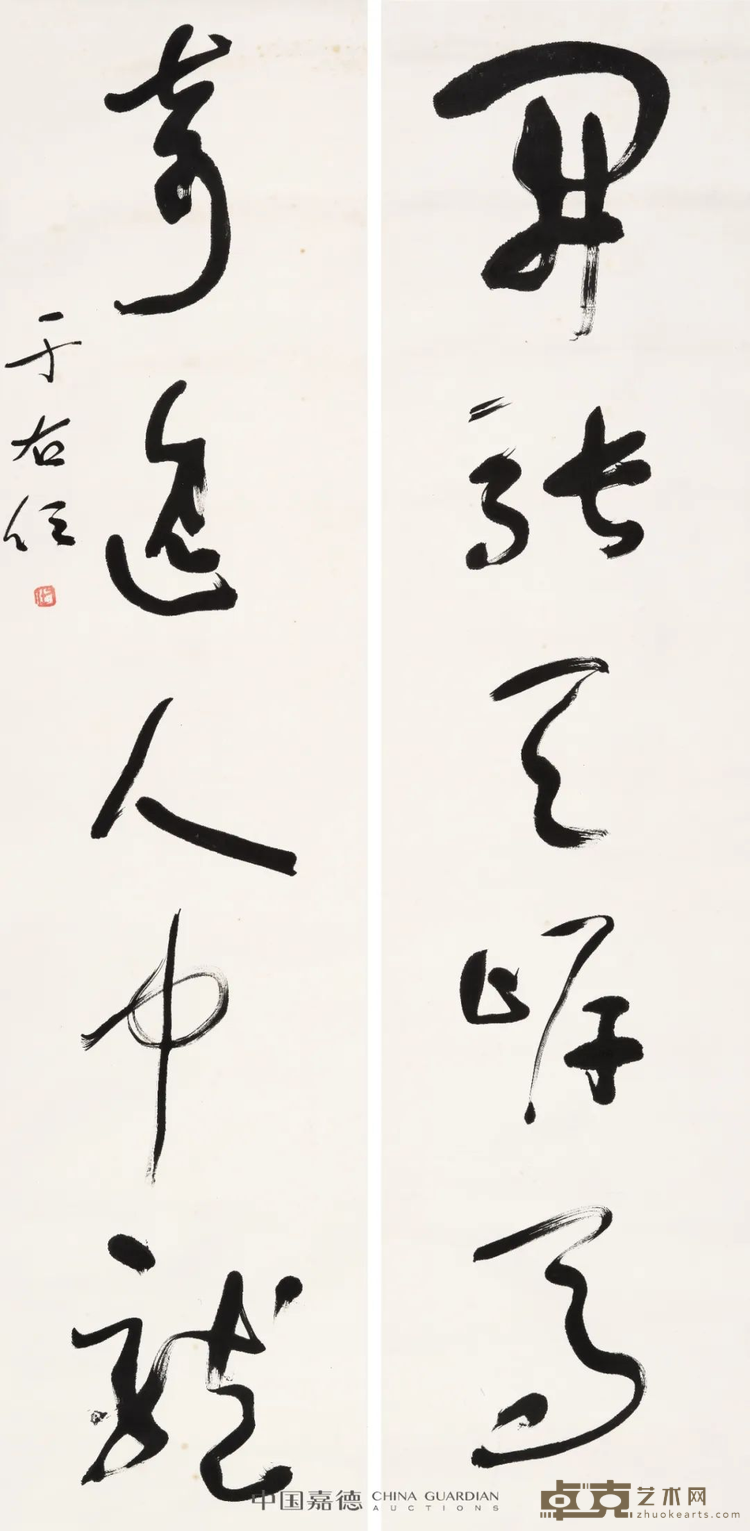 開張天岸馬
奇逸人中龍
于右任
中国嘉德 CHINA GUARDIAN
AUCTIONS
卓克艺术网
zhuokearts.com